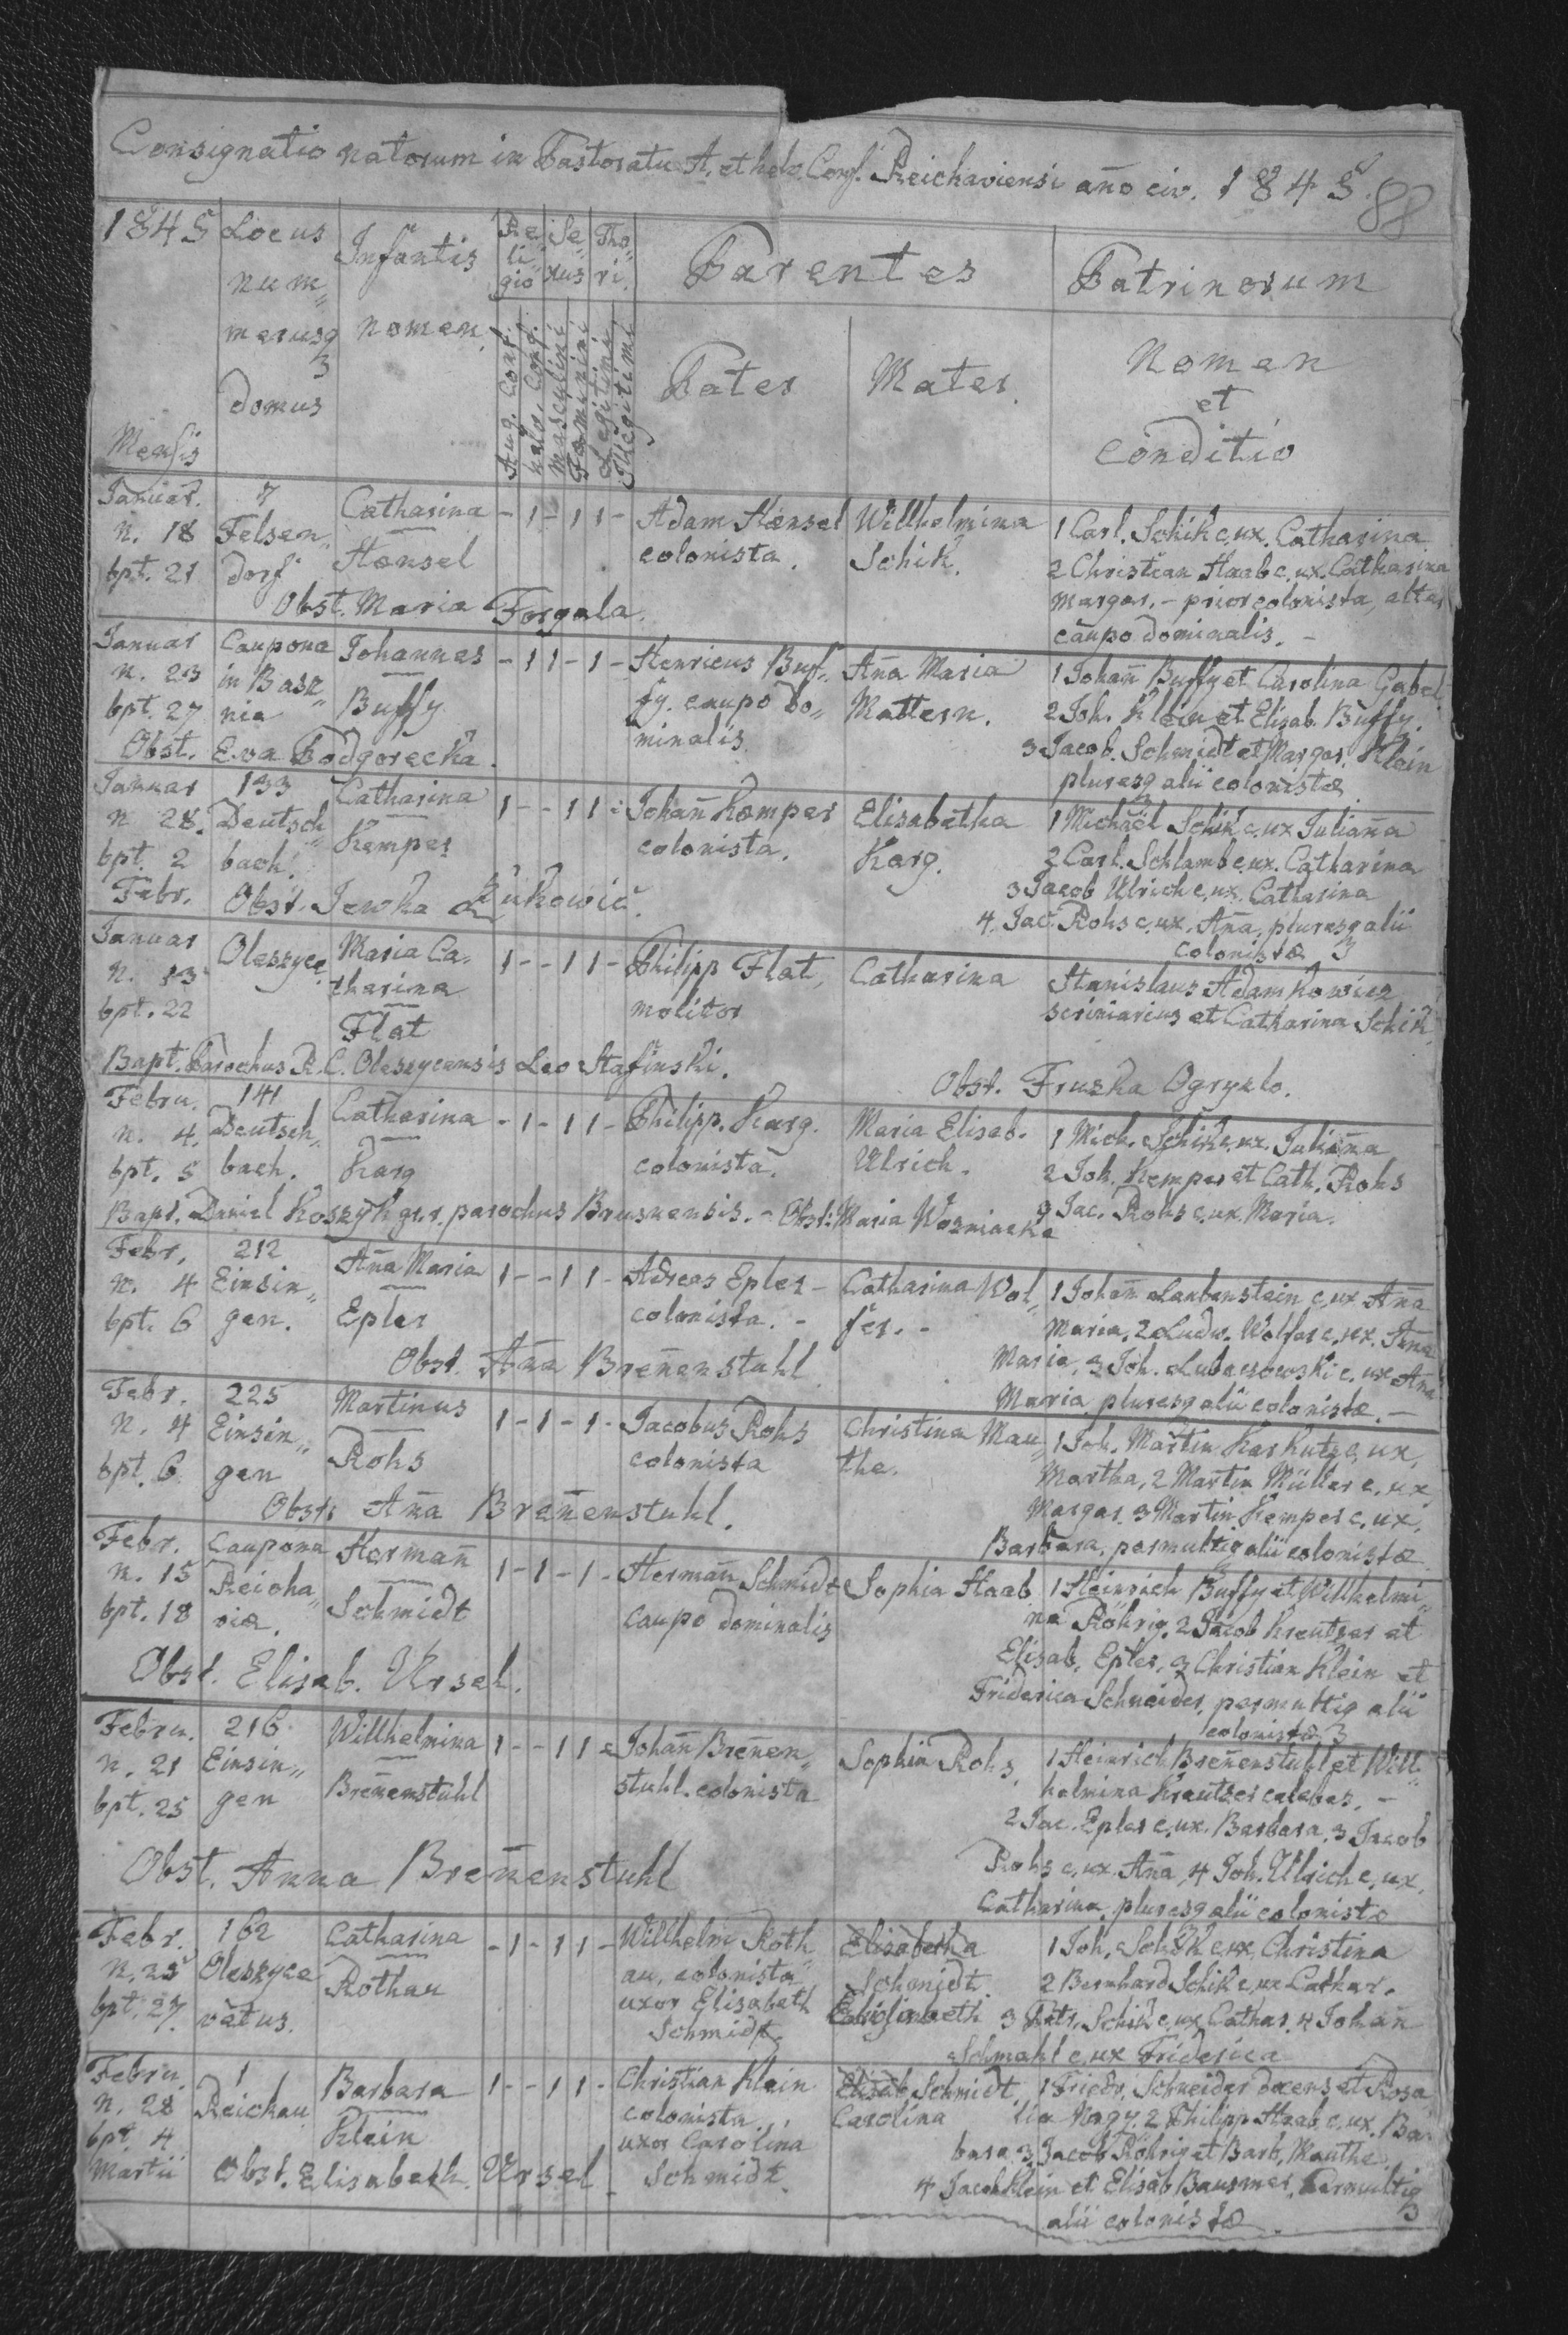 Consignatio natorum in Pastoratu A. et helv. Conf. Reichaviensi año civ. 1845.
88
1845
Mensis
Locus
num„
merusq
domus
Infantis
nomen.
Re„
li„
gio
Se„
xus
Tho„
ri.
Aug. Conf.
helv. Conf.
Masculini
Fœminini
Legitimi
Illegitimi
Parentes
Pater
Mater.
Patrinorum
Nomen
et
Conditio
Januar.
n. 18
bpt. 21
7
Felsen„
dorf
Catharina
Hænsel
- 1 - 1 1 -
Adam Hænsel
colonista.
Willhelmina
Schik.
1 Carl. Schik c. ux. Catharina
2 Christian Haab c. ux. Catharina
Margar. - prior colonista, alter
caupo dominalis. -
Obst. Maria Forgala.
Januar
n. 23
bpt. 27
Caupona
in Basz„
nia
Johannes
Buffy
- 1 1 - 1 -
Henricus Buf„
fy. caupo do„
minalis
Aña Maria
Mattern.
1 Johañ Buffy et Carolina Gabel
2 Joh. Klein et Elisab. Buffy.
3 Jacob. Schmidt et Margar. Klein
pluresq alii colonistæ
Obst. Eva Podgorecka.
Januar
n. 28.
bpt. 2
Febr.
133
Deutsch„
bach.
Catharina
Kemper
1 - - 1 1 -
Johañ Kemper
colonista.
Elisabetha
Karg.
1 Michaël Schik c. ux Juliaña
2 Carl. Schlamb c. ux. Catharina
3 Jacob Ulrich c. ux. Catharina
4. Jac. Rohs c. ux. Aña, pluresq alii
colonistæ
Obst. Jewka Zukowič.
Januar
n. 13
bpt. 22
Oleszyce.
Maria Ca„
tharina
Flat
1 - - 1 1 -
Philipp Flat,
molitor
Catharina
Stanislaus Adamkowicz
scriniarius et Catharina Schik.
Bapt. Parochus R. C. Oleszycensis Leo Stafinski.
Obst. Fruska Ogryzlo.
Febru.
n. 4.
bpt. 5
141
Deutsch„
bach.
Catharina
Karg
- 1 - 1 1 -
Philipp. Karg.
colonista.
Maria Elisab.
Ulrich.
1 Mich. Schik c. ux. Juliaña
2 Joh. Kemper et Cath. Rohs
3 Jac. Rohs c. ux. Maria.
Bapt. Daniel Koszyk gr. r. parochus Brusnensis. - Obst: Maria Wozniacka
Febr.
n. 4
bpt. 6
212
Einsin„
gen.
Aña Maria
Epler
1 - - 1 1 -
Adreas Epler -
colonista. -
Catharina Wol„
fer. -
1 Johañ Laubenstein c. ux Aña
Maria, 2 Ludw. Wolfer c. ux. Aña
Maria, 3 Joh. Lubaczowski c. ux Aña
Maria pluresq alii colonistæ. -
Obst. Aña Breñenstuhl
Febr.
n. 4
bpt. 6.
225
Einsin„
gen
Martinus
Rohs
1 - 1 - 1 -
Jacobus Rohs
colonista
Christina Mau„
the.
1 Joh. Martin Karkutz c. ux.
Martha, 2 Martin Müller c. ux
Margar. 3 Martin Kemper c. ux.
Barbara, permultiq alii colonistæ
Obst: Aña Breñenstuhl.
Febr.
n. 15
bpt. 18
Caupona
Reicha„
viæ.
Hermañ
Schmidt
1 - 1 - 1 -
Hermañ Schmidt
Caupo dominalis
Sophia Haab
1 Heinrich Buffy et Willhelmi„
na Röhrig. 2 Jacob Kreutzer et
Elisab. Epler, 3 Christian Klein et
Friderica Schneider, permultiq alii
colonistæ
Obst. Elisab. Ursel.
Febru.
n. 21
bpt. 25
216
Einsin„
gen
Willhelmina
Breñenstuhl
1 - - 1 1 -
Johañ Breñen„
stuhl. colonista
Sophia Rohs.
1 Heinrich Breñenstuhl et Will„
helmina Kreutzer cælebes. -
2 Jac. Epler c. ux. Barbara. 3 Jacob
Rohs c. ux. Aña, 4 Joh. Ullrich c. ux.
Catharina, pluresq alii colonistæ
Obst. Anna Breñenstuhl
Febr.
n. 25
bpt. 27.
162
Oleszyce
vætus.
Catharina
Rothau
- 1 - 1 1 -
Willhelm Roth„
au, colonista
uxor Elisabeth
Schmidt.
Elisabetha
Schmidt
1 Joh. Schik c. ux. Christina
2 Bernhard Schik c. ux Cathar.
3 Petr. Schik c. ux Cathar. 4 Johañ
Schmahl c. ux Friderica
Febru.
n. 28
bpt 4
Martii
1
Reichau
Barbara
Klein
1 - - 1 1 -
Christian Klein
colonista
uxor Carolina
Schmidt.
Elisab. Schmidt
Carolina
1 Friedr. Schneider docens et Rosa„
lia Nagy. 2 Philipp Haab c. ux. Bar„
bara 3. Jacob Röhrig et Barb. Mauthe.
4 Jacob Klein et Elisab Bausmer. Permultiq
alii colonistæ.
Obst. Elisabeth. Ursel